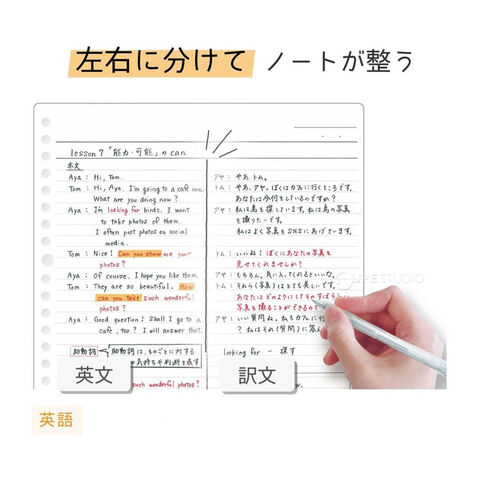 左右に分けて ノートが整う
lesson 7 「能力・可能」の can
本文
Aya : Hi, Tom.
Tom : Hi, Aya. I'm going to a cafe now.
What are you doing now?
Aya : I'm looking for birds. I want
to take photos of them.
I often post photos on social
media.
Tom : Nice! Can you show me your
photos?
Aya : Of course. I hope you like them.
Tom : They are so beautiful. How
can you take such wonderful
photos?
Aya : Good question! Shall I go to a
cafe, too? I will answer that.
助動詞 助動詞は、ものごとに対する
の気持ちや判断を表す
such wonderful photos?
英文
アヤ : やあ、トム。
トム : やあ、アヤ。ぼくはカフェに行くところです。
あなたは今何をしているのですか?
アヤ : 私は鳥を探しています。私は鳥の写真
を撮りたいです。
私はよく写真をSNSにあげています。
トム : いいね! ぼくにあなたの写真を
見せてくれませんか?
アヤ : もちろん。気に入ってくれるといいな。
トム : それら(写真)はとても美しいです。
あなたはどのようにしてそのすばらしい
写真を撮ることができるので
アヤ : いい質問ね。私もカフェに行
? 私はその(質問)に答え
looking for ー 探す
訳文
英語